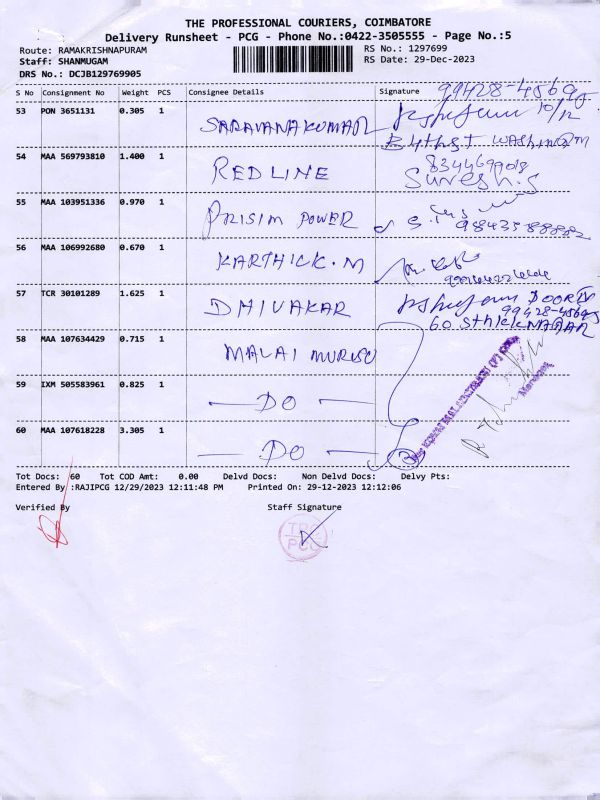 THE PROFESSIONAL COURIERS, COIMBATORE
Delivery Runsheet - PCG - Phone No.:0422-3505555 - Page No.:5
Route: RAMAKRISHNAPURAM RS No.: 1297699
Staff: SHANMUGAM RS Date: 29-Dec-2023
DRS No.: DCJB129769905
S No Consignment No Weight PCS Consignee Details Signature
53 PON 3651131 0.305 1 SARAVANAKUMAR 10/12
54 MAA 569793810 1.400 1 REDLINE Suresh.S
55 MAA 103951336 0.970 1 PRISIM POWER
56 MAA 106992680 0.670 1 KARTHICK.M
57 TCR 30101289 1.625 1 DHIVAKAR
58 MAA 107634429 0.715 1 MALAI MURUSU
59 IXM 505583961 0.825 1 — DO —
60 MAA 107618228 3.305 1 — DO —
Manager
Tot Docs: 60 Tot COD Amt: 0.00 Delvd Docs: Non Delvd Docs: Delvy Pts:
Entered By :RAJIPCG 12/29/2023 12:11:48 PM Printed On: 29-12-2023 12:12:06
Verified By Staff Signature
PCG